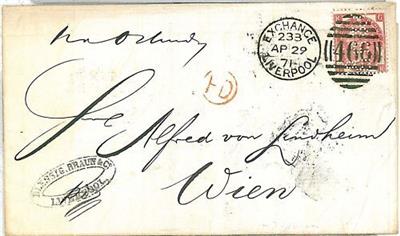 via Ostende
EXCHANGE
23B
AP 29
71
LIVERPOOL
466
G
PD
Alfred von Lindheim
Wien
BLESSIG, BRAUN & Co
LIVERPOOL